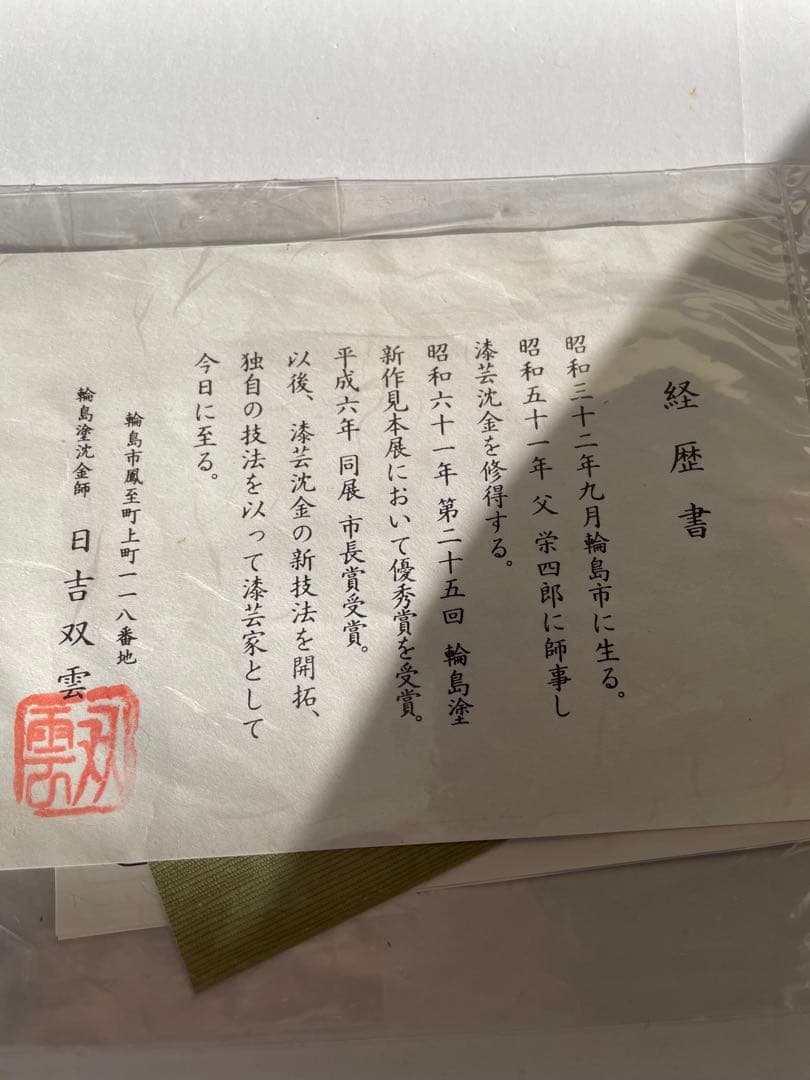 経歴書
昭和三十二年九月輪島市に生る。
昭和五十一年 父 栄四郎に師事し
漆芸沈金を修得する。
昭和六十一年 第二十五回 輪島塗
新作見本展において優秀賞を受賞。
平成六年 同展 市長賞受賞。
以後、漆芸沈金の新技法を開拓、
独自の技法を以って漆芸家として
今日に至る。
輪島市鳳至町上町一一八番地
輪島塗沈金師 日吉双雲
双雲